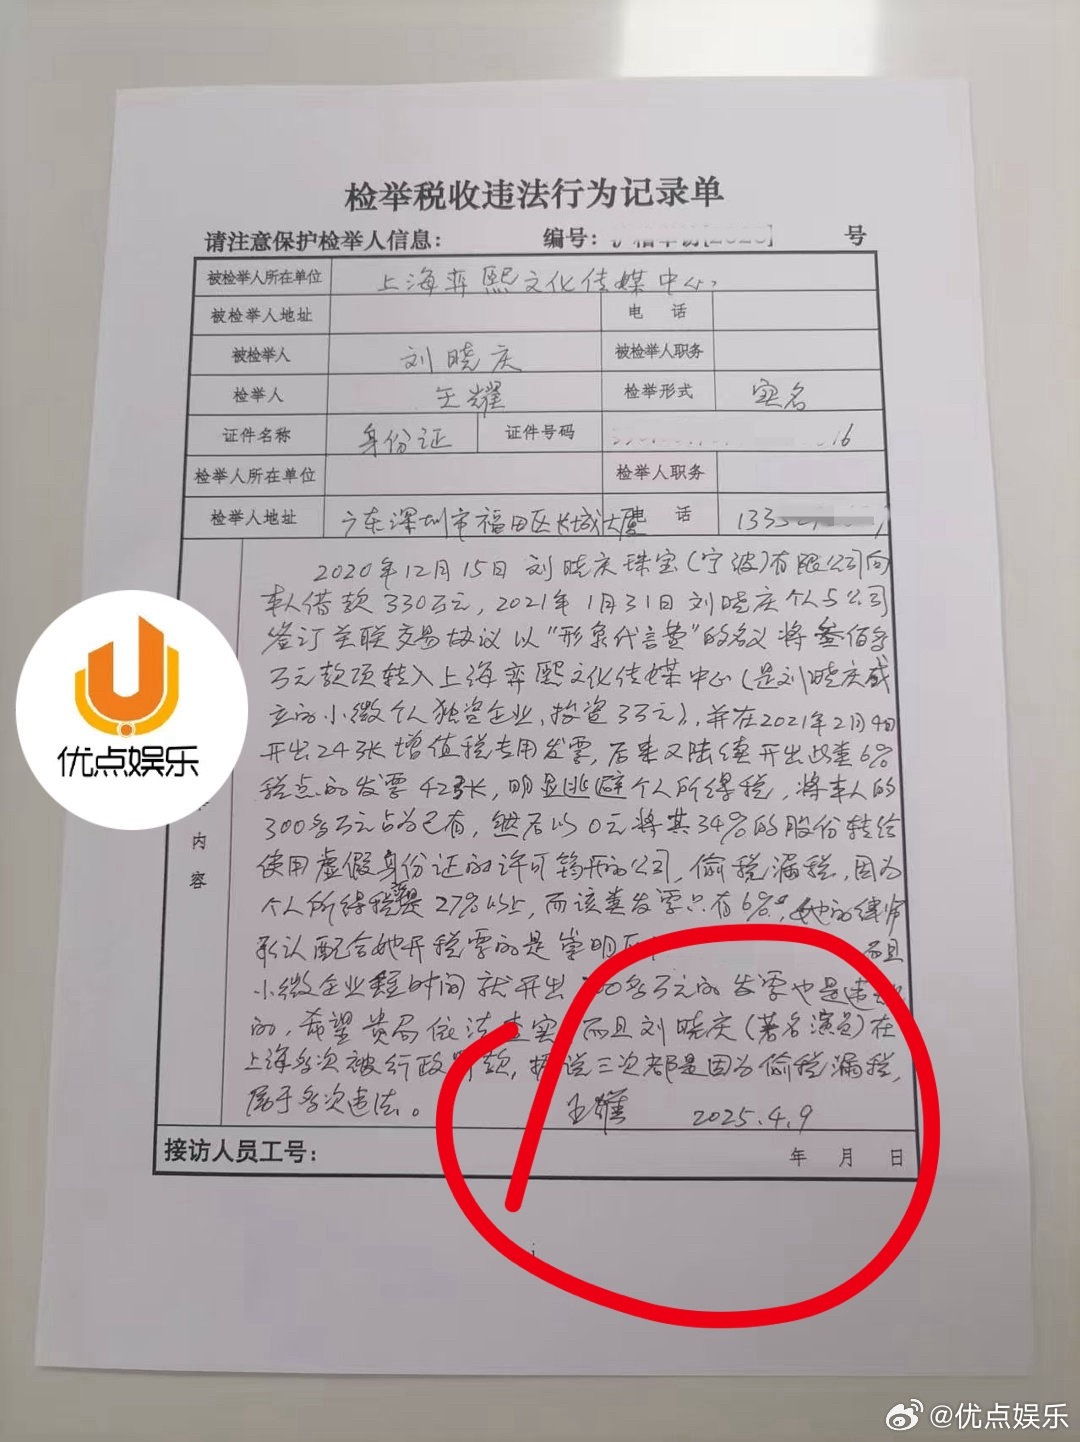 检举税收违法行为记录单
请注意保护检举人信息： 编号： 号
被检举人所在单位 上海弈熙文化传媒中心
被检举人地址 电 话
被检举人 刘晓庆 被检举人职务
检举人 王耀 检举形式 实名
证件名称 身份证 证件号码 16
检举人所在单位 检举人职务
检举人地址 广东深圳市福田区长城大厦 电 话 133
2020年12月15日刘晓庆珠宝(宁波)有限公司向
本人借款330万元，2021年1月31日刘晓庆个人与公司
签订关联交易协议以“形象代言费”的名义将叁佰多
万元款项转入上海弈熙文化传媒中心(是刘晓庆成
立的小微个人独资企业，投资3万元)，并在2021年2月4日
开出24张增值税专用发票，后来又陆续开出此类6%
税点的发票42张，明显逃避个人所得税，将本人的
300多万元占为己有，然后以0元将其34%的股份转给
使用虚假身份证的许可筠开的公司，偷税漏税，因为
个人所得税是27%以上，而该类发票只有6%。她的律师
承认配合她开税票的是崇明 而且
小微企业短时间就开出 00多万元的发票也是违
的，希望贵局依法查实 而且刘晓庆(著名演员)在
上海多次被行政 款，据说三次都是因为偷税漏税，
属于多次违法。 王耀 2025.4.9
内
容
接访人员工号： 年 月 日
优点娱乐
@优点娱乐